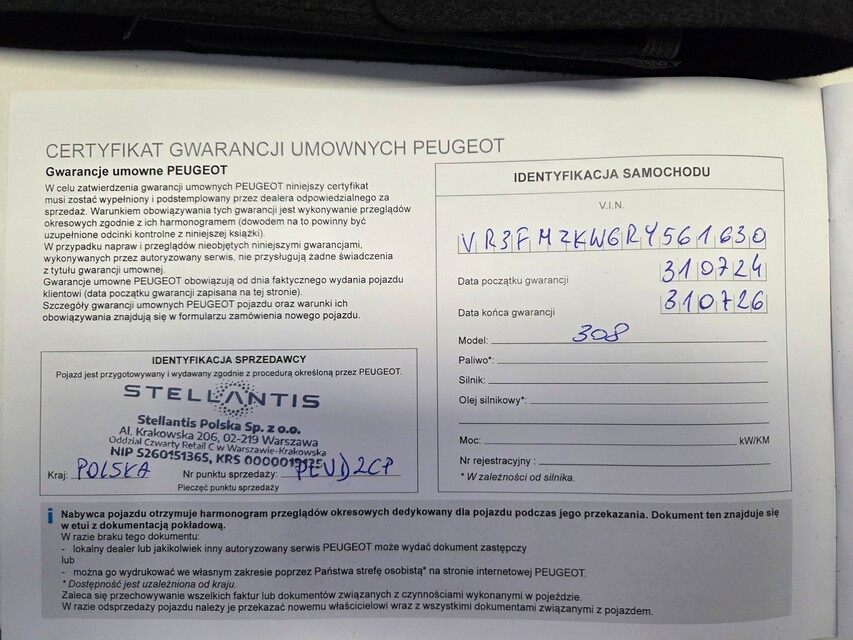 CERTYFIKAT GWARANCJI UMOWNYCH PEUGEOT
Gwarancje umowne PEUGEOT
W celu zatwierdzenia gwarancji umownych PEUGEOT niniejszy certyfikat
musi zostać wypełniony i podstemplowany przez dealera odpowiedzialnego za
sprzedaż. Warunkiem obowiązywania tych gwarancji jest wykonywanie przeglądów
okresowych zgodnie z ich harmonogramem (dowodem na to powinny być
uzupełnione odcinki kontrolne z niniejszej książki).
W przypadku napraw i przeglądów nieobjętych niniejszymi gwarancjami,
wykonywanych przez autoryzowany serwis, nie przysługują żadne świadczenia
z tytułu gwarancji umownej.
Gwarancje umowne PEUGEOT obowiązują od dnia faktycznego wydania pojazdu
klientowi (data początku gwarancji zapisana na tej stronie).
Szczegóły gwarancji umownych PEUGEOT pojazdu oraz warunki ich
obowiązywania znajdują się w formularzu zamówienia nowego pojazdu.
IDENTYFIKACJA SPRZEDAWCY
Pojazd jest przygotowywany i wydawany zgodnie z procedurą określoną przez PEUGEOT.
STELLANTIS
Stellantis Polska Sp. z o.o.
Al. Krakowska 206, 02-219 Warszawa
Oddział Czwarty Retail C w Warszawie-Krakowska
NIP 5260151365, KRS
Kraj: POLSKA Nr punktu sprzedaży:
Pieczęć punktu sprzedaży
IDENTYFIKACJA SAMOCHODU
V.I.N.
VR3FMZKW6RY561630
Data początku gwarancji 310724
Data końca gwarancji 310726
Model: 308
Paliwo*:
Silnik:
Olej silnikowy*:
Moc: kW/KM
Nr rejestracyjny :
* W zależności od silnika.
i Nabywca pojazdu otrzymuje harmonogram przeglądów okresowych dedykowany dla pojazdu podczas jego przekazania. Dokument ten znajduje się
w etui z dokumentacją pokładową.
W razie braku tego dokumentu:
- lokalny dealer lub jakikolwiek inny autoryzowany serwis PEUGEOT może wydać dokument zastępczy
lub
- można go wydrukować we własnym zakresie poprzez Państwa strefę osobistą* na stronie internetowej PEUGEOT.
* Dostępność jest uzależniona od kraju.
Zaleca się przechowywanie wszelkich faktur lub dokumentów związanych z czynnościami wykonanymi w pojeździe.
W razie odsprzedaży pojazdu należy je przekazać nowemu właścicielowi wraz z wszystkimi dokumentami związanymi z pojazdem.